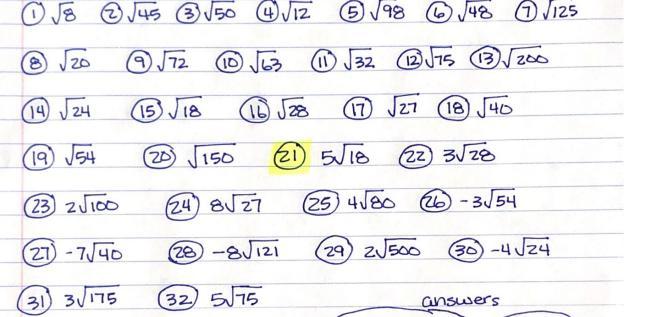 ① √8 ② √45 ③ √50 ④ √12 ⑤ √98 ⑥ √48 ⑦ √125
⑧ √20 ⑨ √72 ⑩ √63 ⑪ √32 ⑫ √75 ⑬ √200
⑭ √24 ⑮ √18 ⑯ √28 ⑰ √27 ⑱ √40
⑲ √54 ⑳ √150 ㉑ 5√18 ㉒ 3√28
㉓ 2√100 ㉔ 8√27 ㉕ 4√80 ㉖ -3√54
㉗ -7√40 ㉘ -8√121 ㉙ 2√500 ㉚ -4√24
㉛ 3√175 ㉜ 5√75 answers